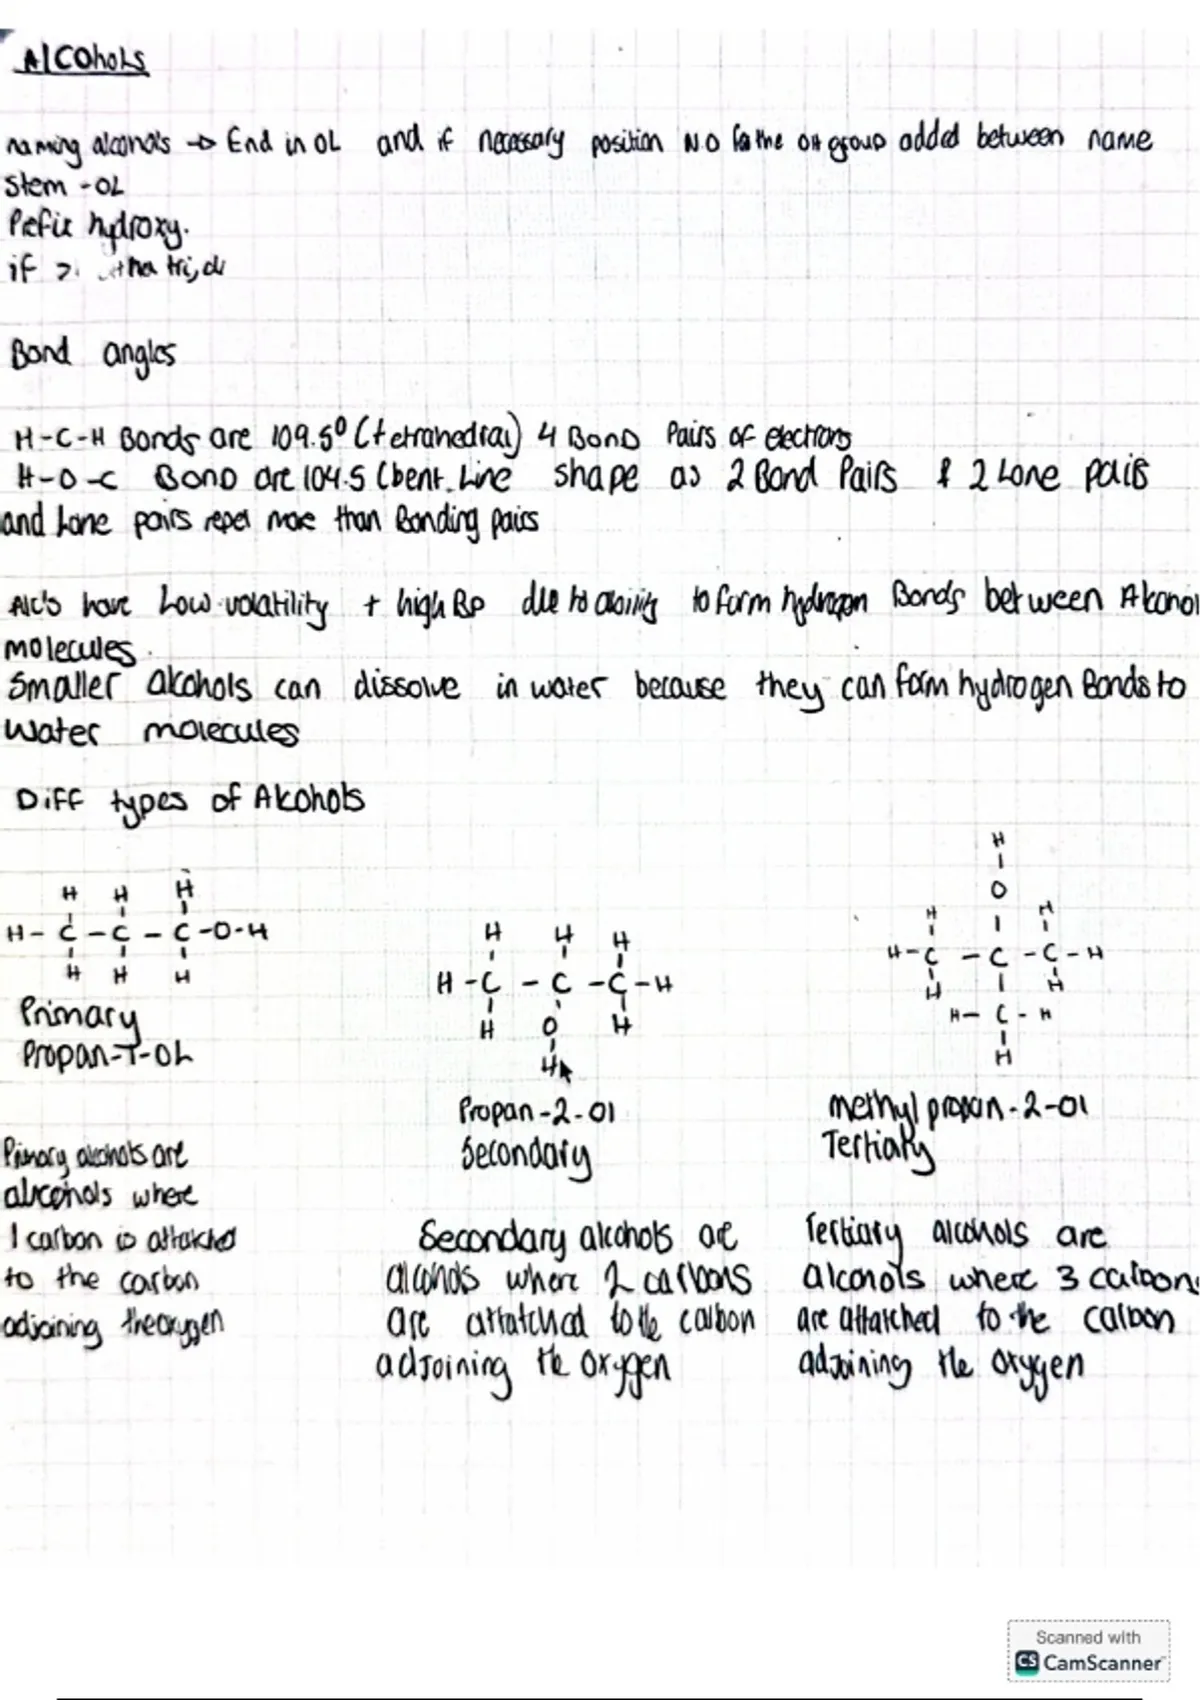 Alcohols
naming alcohols → End in OL and if necessary position NO for the OH group added between name
Stem -OL
Prefix hydroxy.
if tri, di
Bond angles
H-C-H Bonds are 109.5° (tetrahedral) 4 Bond Pairs of electrons
H-O-C Bond are 104.5 (bent. Line shape as 2 Bond Pairs & 2 Lone pairs
and Lone pairs repel more than Bonding pairs
Alc's have Low volatility + high BP due to ability to form hydrogen Bonds between Alcohol
molecules.
Smaller alcohols can dissolve in water because they can form hydrogen Bonds to
water molecules
Diff types of Alcohols
H H H
H-C-C-C-O-H
H H H
Primary
Propan-1-OL
Primary alcohols are
alcohols where
1 carbon is attatched
to the carbon
adjoining the oxygen
H H H
H-C-C-C-H
H O H
H
Propan-2-ol
Secondary
Secondary alcohols are
alcohols where 2 carbons
are attatched to the carbon
adjoining the oxygen
H
O
H H
H-C-C-C-H
H H
H-C-H
H
methyl propan-2-ol
Tertiary
Tertiary alcohols are
alcohols where 3 carbons
are attatched to the carbon
adjoining the oxygen
Scanned with
CS CamScanner